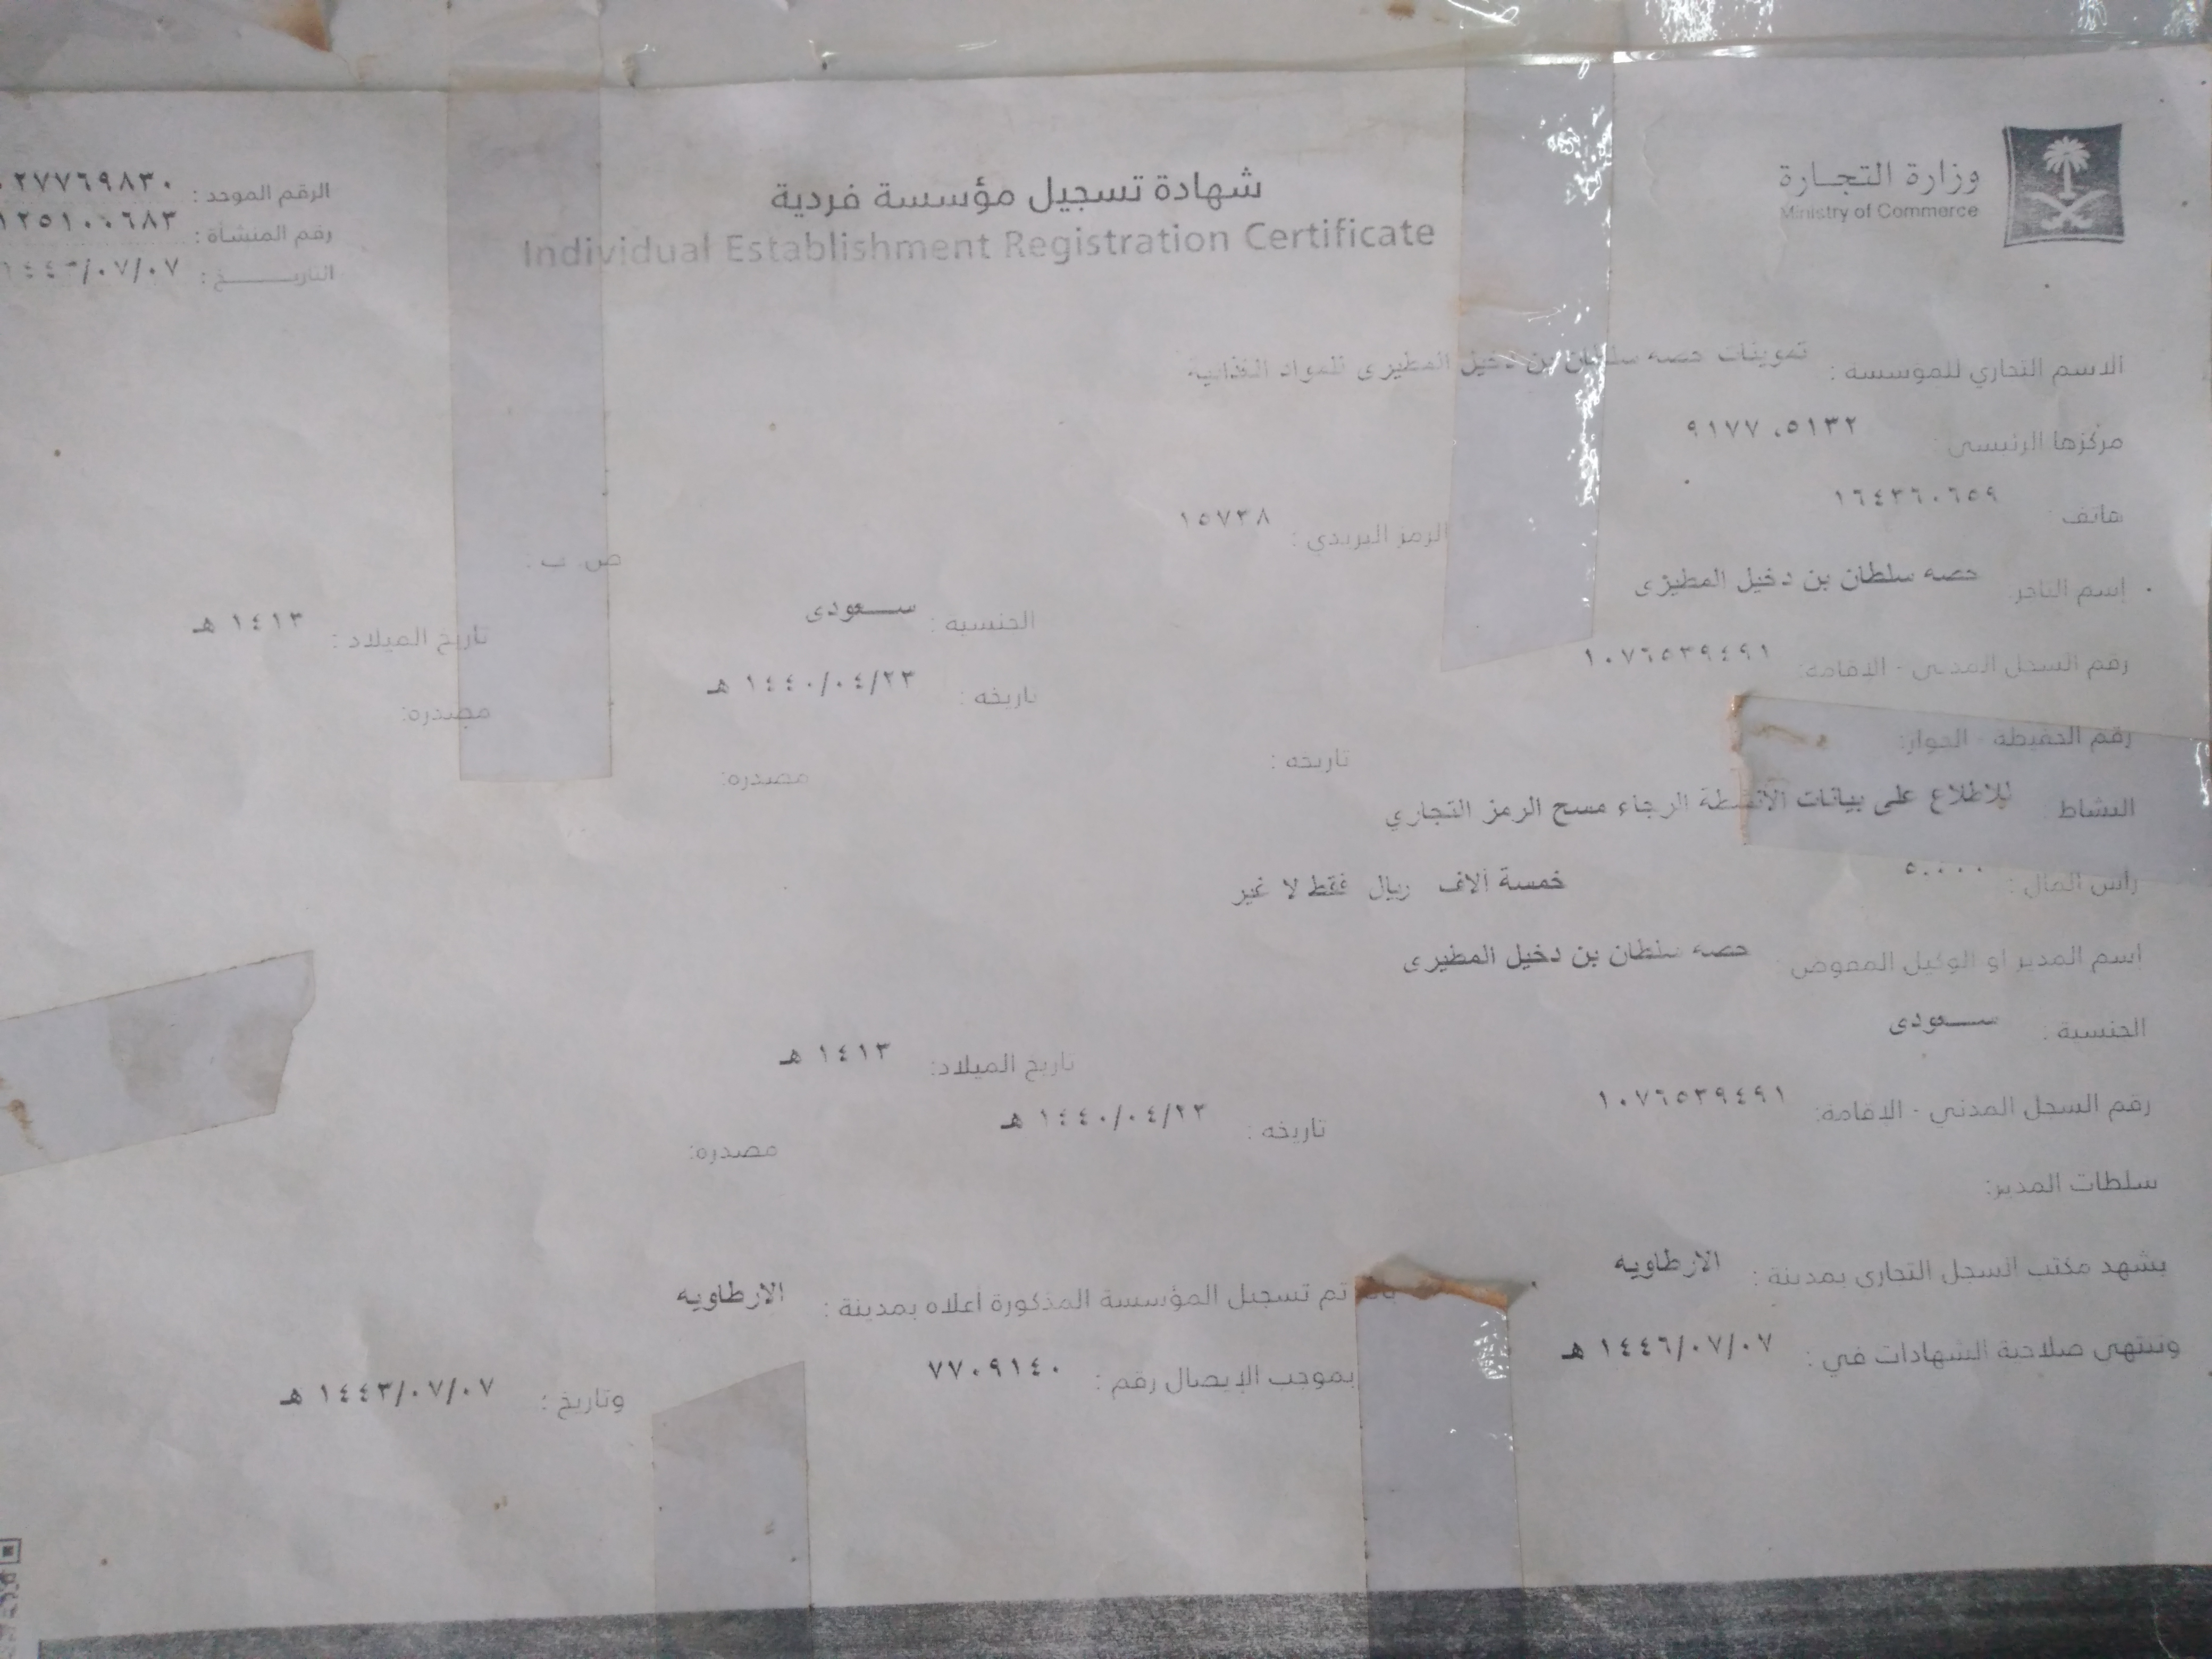 وزارة التجارة
Ministry of Commerce
شهادة تسجيل مؤسسة فردية
Individual Establishment Registration Certificate
الرقم الموحد : ٠٢٧٧٦٩٨٣٠
رقم المنشأة : ١٢٥١٠٠٦٨٣
التاريـــــخ : ١٤٤٣/٠٧/٠٧
الاسم التجاري للمؤسسة : تموينات حصه سلطان بن دخيل المطيرى للمواد الغذائية
مركزها الرئيسي ٩١٧٧ ،٥١٣٢
هاتف ١٦٤٣٦٠٦٥٩ الرمز البريدي : ١٥٧٣٨ ص. ب :
إسم التاجر حصه سلطان بن دخيل المطيرى الجنسية : ســـعودى تاريخ الميلاد : ١٤١٣ هـ
رقم السجل المدني - الاقامة: ١٠٧٦٥٣٩٤٩١ تاريخه : ١٤٤٠/٠٤/٢٣ هـ مصدره:
رقم الحفيظة - الجواز: تاريخه : مصدره:
النشاط للاطلاع على بيانات الأنشطة الرجاء مسح الرمز التجاري
رأس المال : ٥,٠٠٠ خمسة آلاف ريال فقط لا غير
اسم المدير او الوكيل المفوض : حصه سلطان بن دخيل المطيرى
الجنسية : ســـعودى تاريخ الميلاد: ١٤١٣ هـ
رقم السجل المدني - الاقامة: ١٠٧٦٥٣٩٤٩١ تاريخه : ١٤٤٠/٠٤/٢٣ هـ مصدره:
سلطات المدير:
يشهد مكتب السجل التجاري بمدينة : الارطاويه تم تسجيل المؤسسة المذكورة أعلاه بمدينة : الارطاويه
وتنتهى صلاحية الشهادات في : ١٤٤٦/٠٧/٠٧ هـ بموجب الإيصال رقم : ٧٧٠٩١٤٠ وتاريخ : ١٤٤٣/٠٧/٠٧ هـ